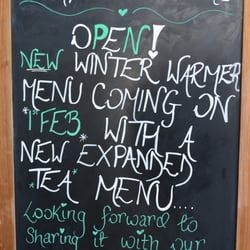 OPEN!
NEW WINTER WARMER
MENU COMING ON
*1 FEB* WITH A
NEW EXPANDED
*TEA* MENU....
Looking forward to
Sharing it with our